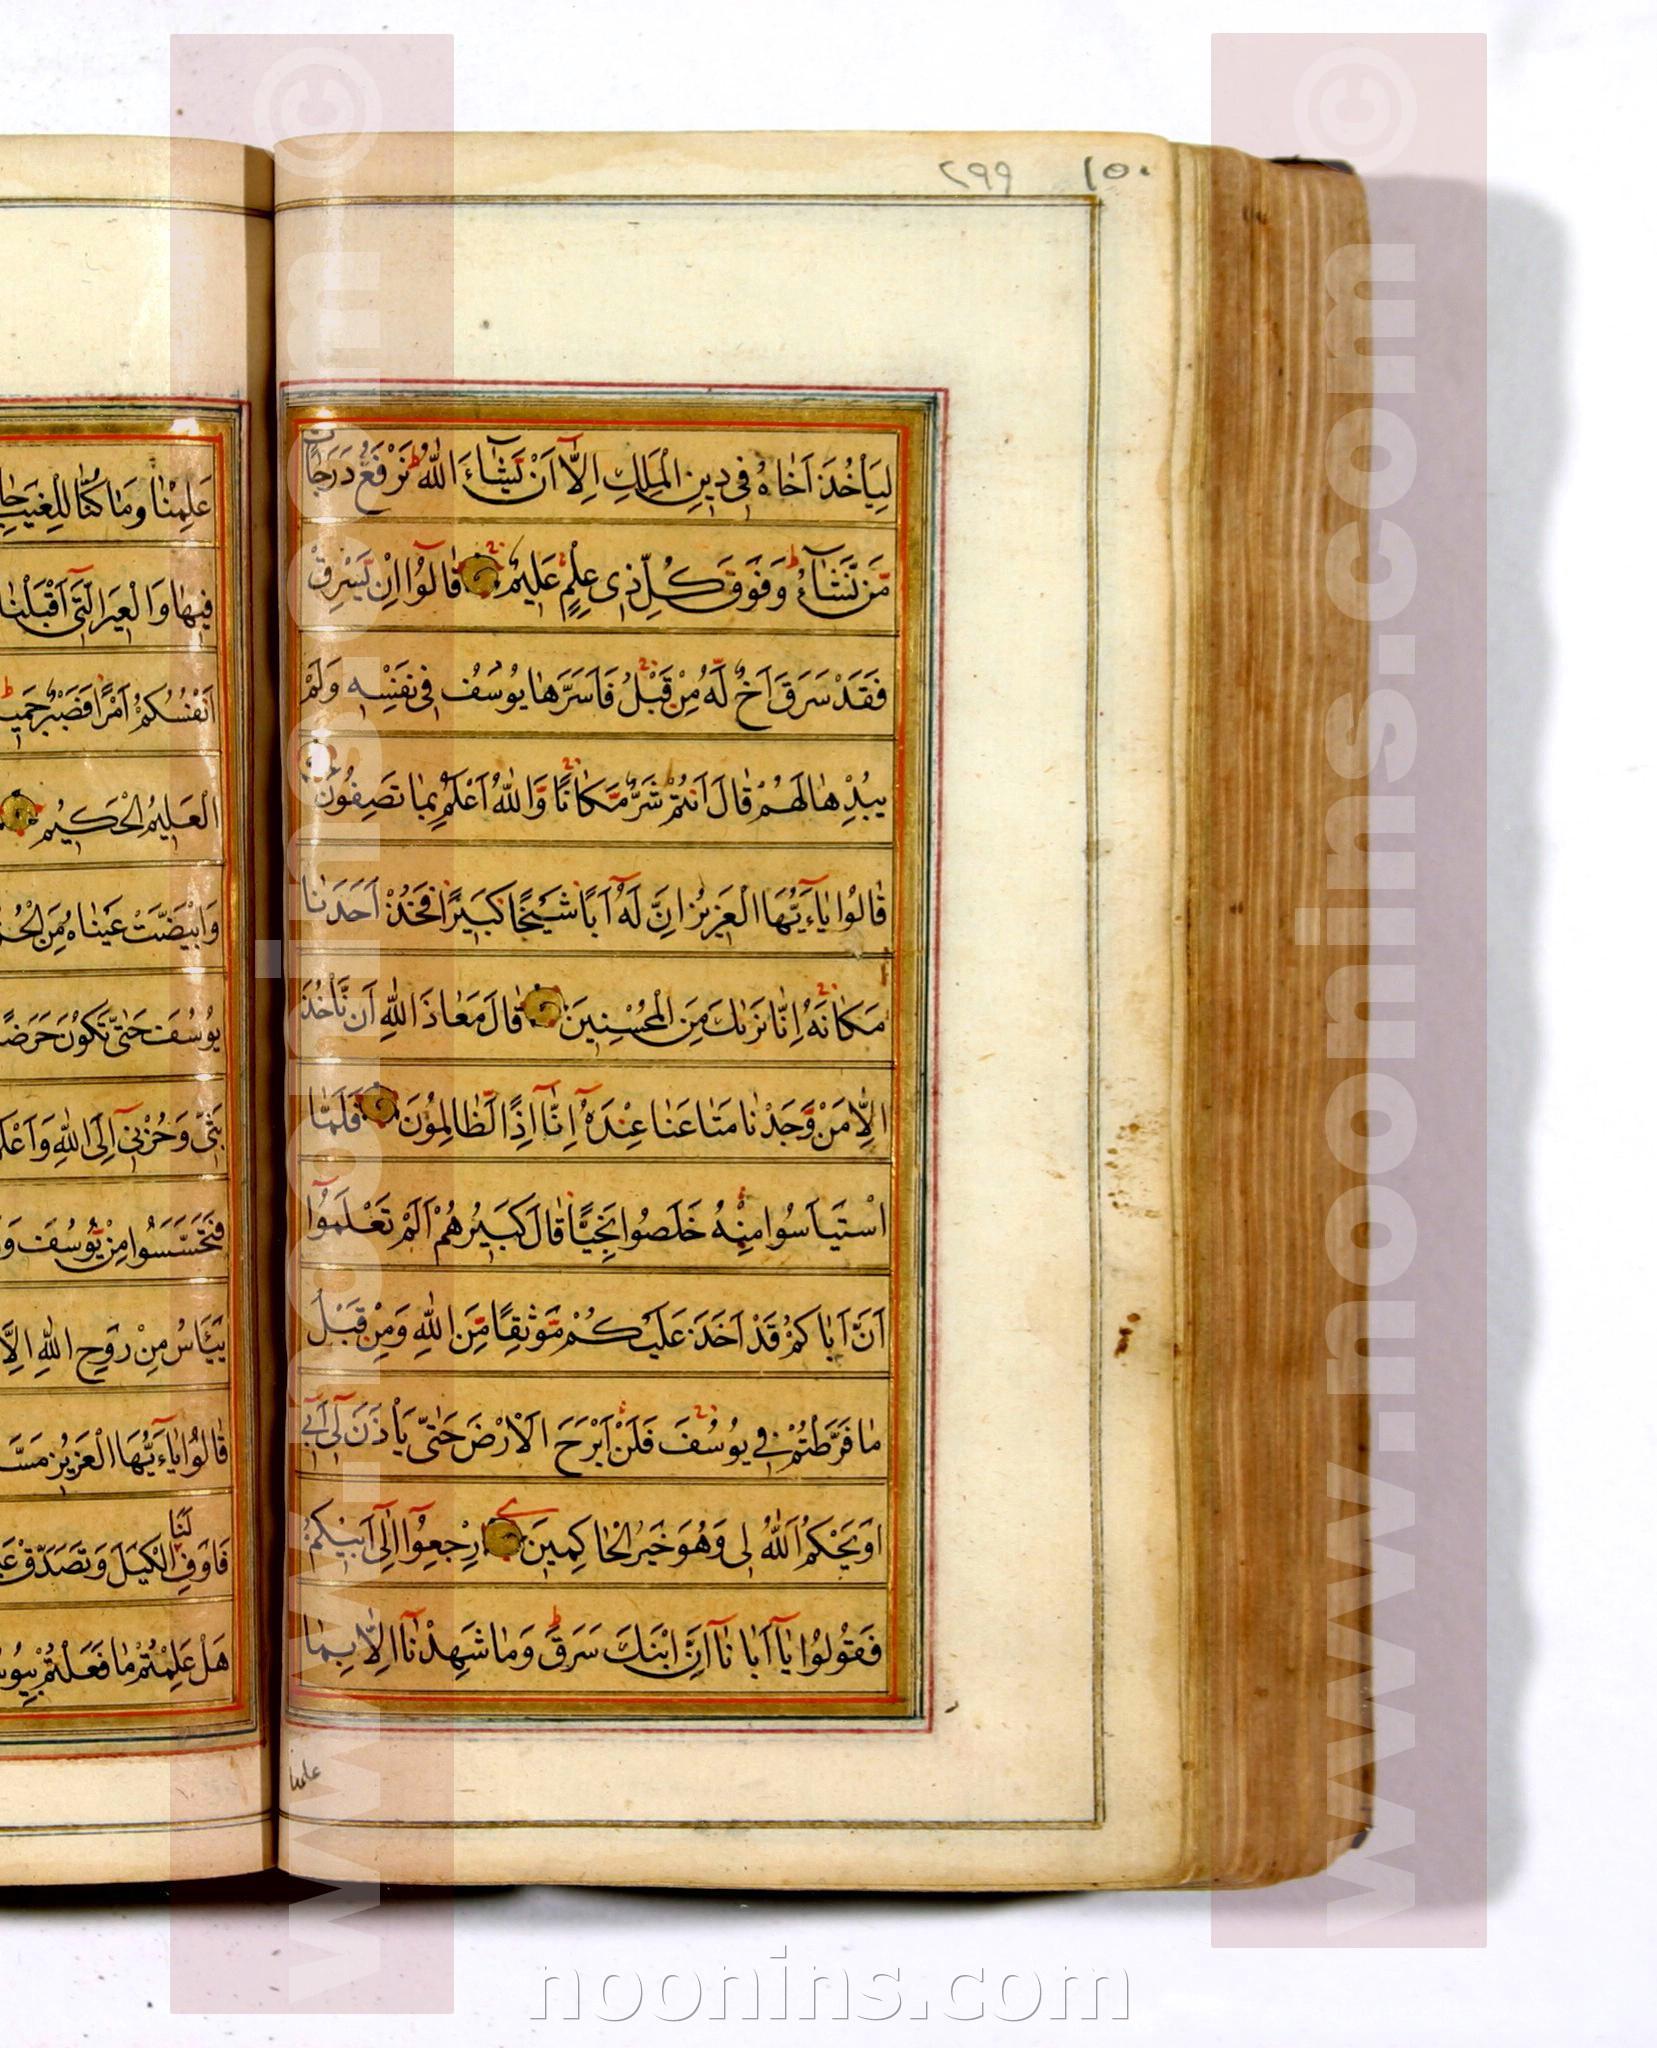 ٢٩٩ ١٥٠
لِيَأْخُذَ اَخَاهُ فِي دِينِ الْمَلِكِ اِلَّا اَنْ يَشَاءَ اللهُ نَرْفَعُ دَرَجَاتٍ
مَنْ نَشَاءُ وَفَوْقَ كُلِّ ذِي عِلْمٍ عَلِيمٌ قَالُوا اِنْ يَسْرِقْ
فَقَدْ سَرَقَ اَخٌ لَهُ مِنْ قَبْلُ فَاَسَرَّهَا يُوسُفُ فِي نَفْسِهِ وَلَمْ
يُبْدِهَا لَهُمْ قَالَ اَنْتُمْ شَرٌّ مَكَانًا وَاللهُ اَعْلَمُ بِمَا تَصِفُونَ
قَالُوا يَاءَيُّهَا الْعَزِيزُ اِنَّ لَهُ اَبًا شَيْخًا كَبِيرًا فَخُذْ اَحَدَنَا
مَكَانَهُ اِنَّا نَرٰيكَ مِنَ الْمُحْسِنِينَ قَالَ مَعَاذَ اللهِ اَنْ نَأْخُذَ
اِلَّا مَنْ وَجَدْنَا مَتَاعَنَا عِنْدَهُ اِنَّا اِذًا لَظَالِمُونَ فَلَمَّا
اسْتَيْاَسُوا مِنْهُ خَلَصُوا نَجِيًّا قَالَ كَبِيرُهُمْ اَلَمْ تَعْلَمُوا
اَنَّ اَبَاكُمْ قَدْ اَخَذَ عَلَيْكُمْ مَوْثِقًا مِنَ اللهِ وَمِنْ قَبْلُ
مَا فَرَّطْتُمْ فِي يُوسُفَ فَلَنْ اَبْرَحَ الْاَرْضَ حَتّٰى يَأْذَنَ لِي اَبِي
اَوْ يَحْكُمَ اللهُ لِي وَهُوَ خَيْرُ الْحَاكِمِينَ اِرْجِعُوا اِلٰى اَبِيكُمْ
فَقُولُوا يَا اَبَانَا اِنَّ ابْنَكَ سَرَقَ وَمَا شَهِدْنَا اِلَّا بِمَا
علمنا
عَلِمْنَا وَمَا كُنَّا لِلْغَيْبِ
فِيهَا وَالْعِيرَ الَّتِي اَقْبَلْنَا
اَنْفُسُكُمْ اَمْرًا فَصَبْرٌ
الْعَلِيمُ الْحَكِيمُ
وَابْيَضَّتْ عَيْنَاهُ مِنَ
يُوسُفَ حَتّٰى تَكُونَ حَرَضًا
بَثِّي وَحُزْنِي اِلَى اللهِ وَ
فَتَحَسَّسُوا مِنْ يُوسُفَ
يَيْئَاسُ مِنْ رَوْحِ اللهِ اِلَّا
قَالُوا يَاءَيُّهَا الْعَزِيزُ
فَاَوْفِ لَنَا الْكَيْلَ وَتَصَدَّقْ
هَلْ عَلِمْتُمْ مَا فَعَلْتُمْ
www.noonins.com ©
www.noonins.com ©
noonins.com